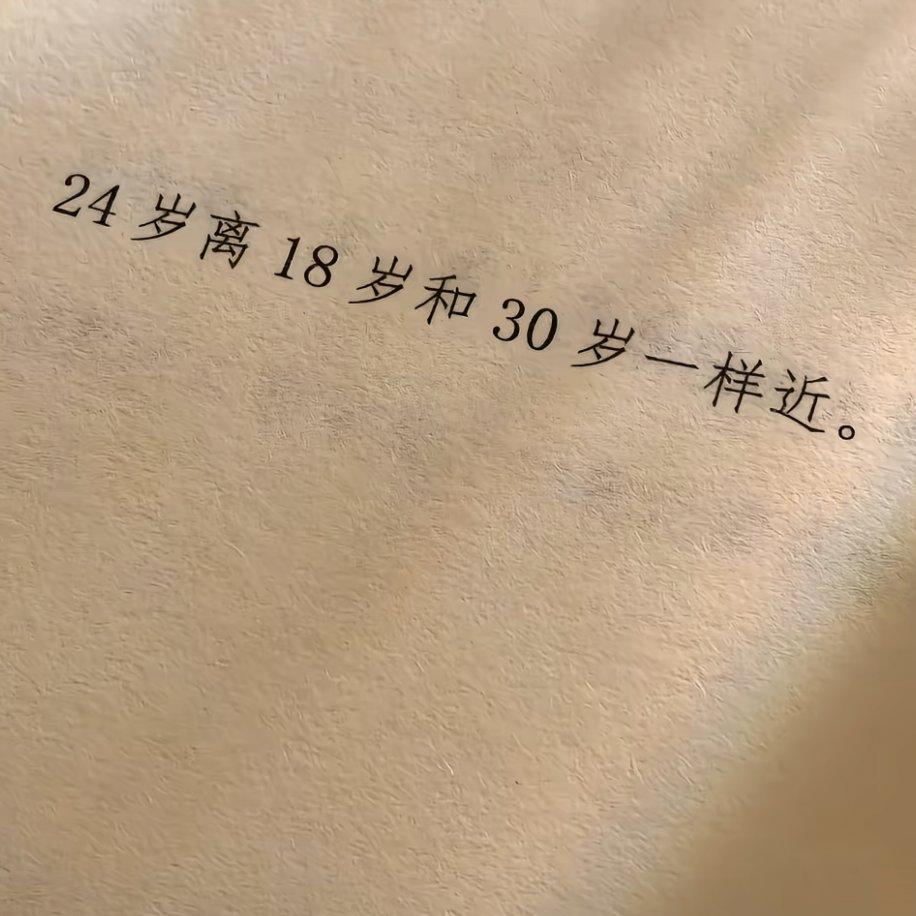 24 岁离 18 岁和 30 岁一样近。